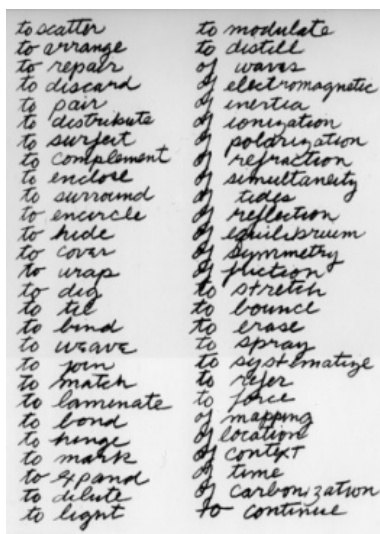 to scatter
to arrange
to repair
to discard
to pair
to distribute
to surfect
to complement
to enclose
to surround
to encircle
to hide
to cover
to wrap
to dig
to tie
to bind
to weave
to join
to match
to laminate
to bond
to hinge
to mark
to expand
to dilute
to light
to modulate
to distill
of waves
of electromagnetic
of inertia
of ionization
of polarization
of refraction
of simultaneity
of tides
of reflection
of equilibrium
of symmetry
of friction
to stretch
to bounce
to erase
to spray
to systematize
to refer
to force
of mapping
of location
of context
of time
of carbonization
to continue